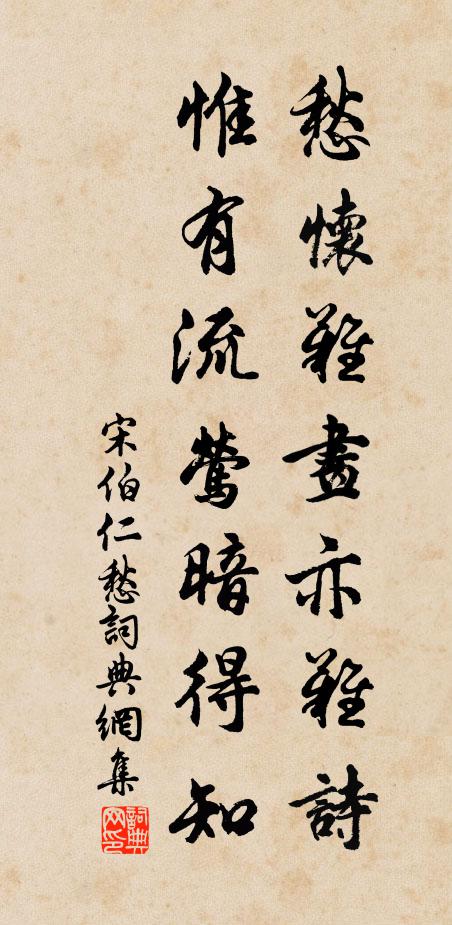 愁懷難畫亦難詩
惟有流鶯暗得知
宋伯仁愁詞典網集
詞典網印